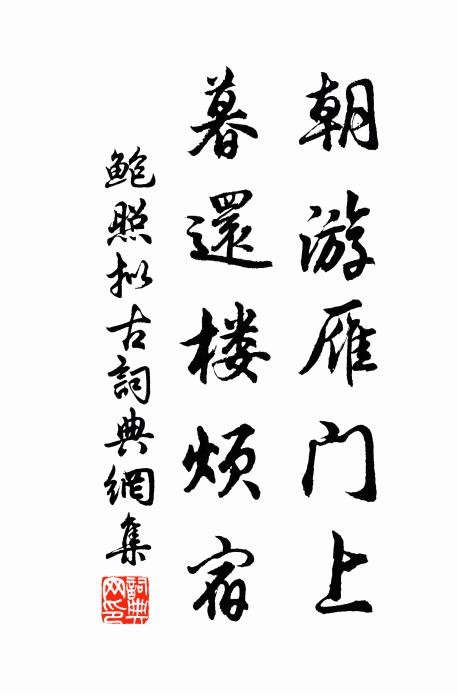 朝游雁门上
暮還楼烦宿
鲍照拟古詞典網集
詞典网印